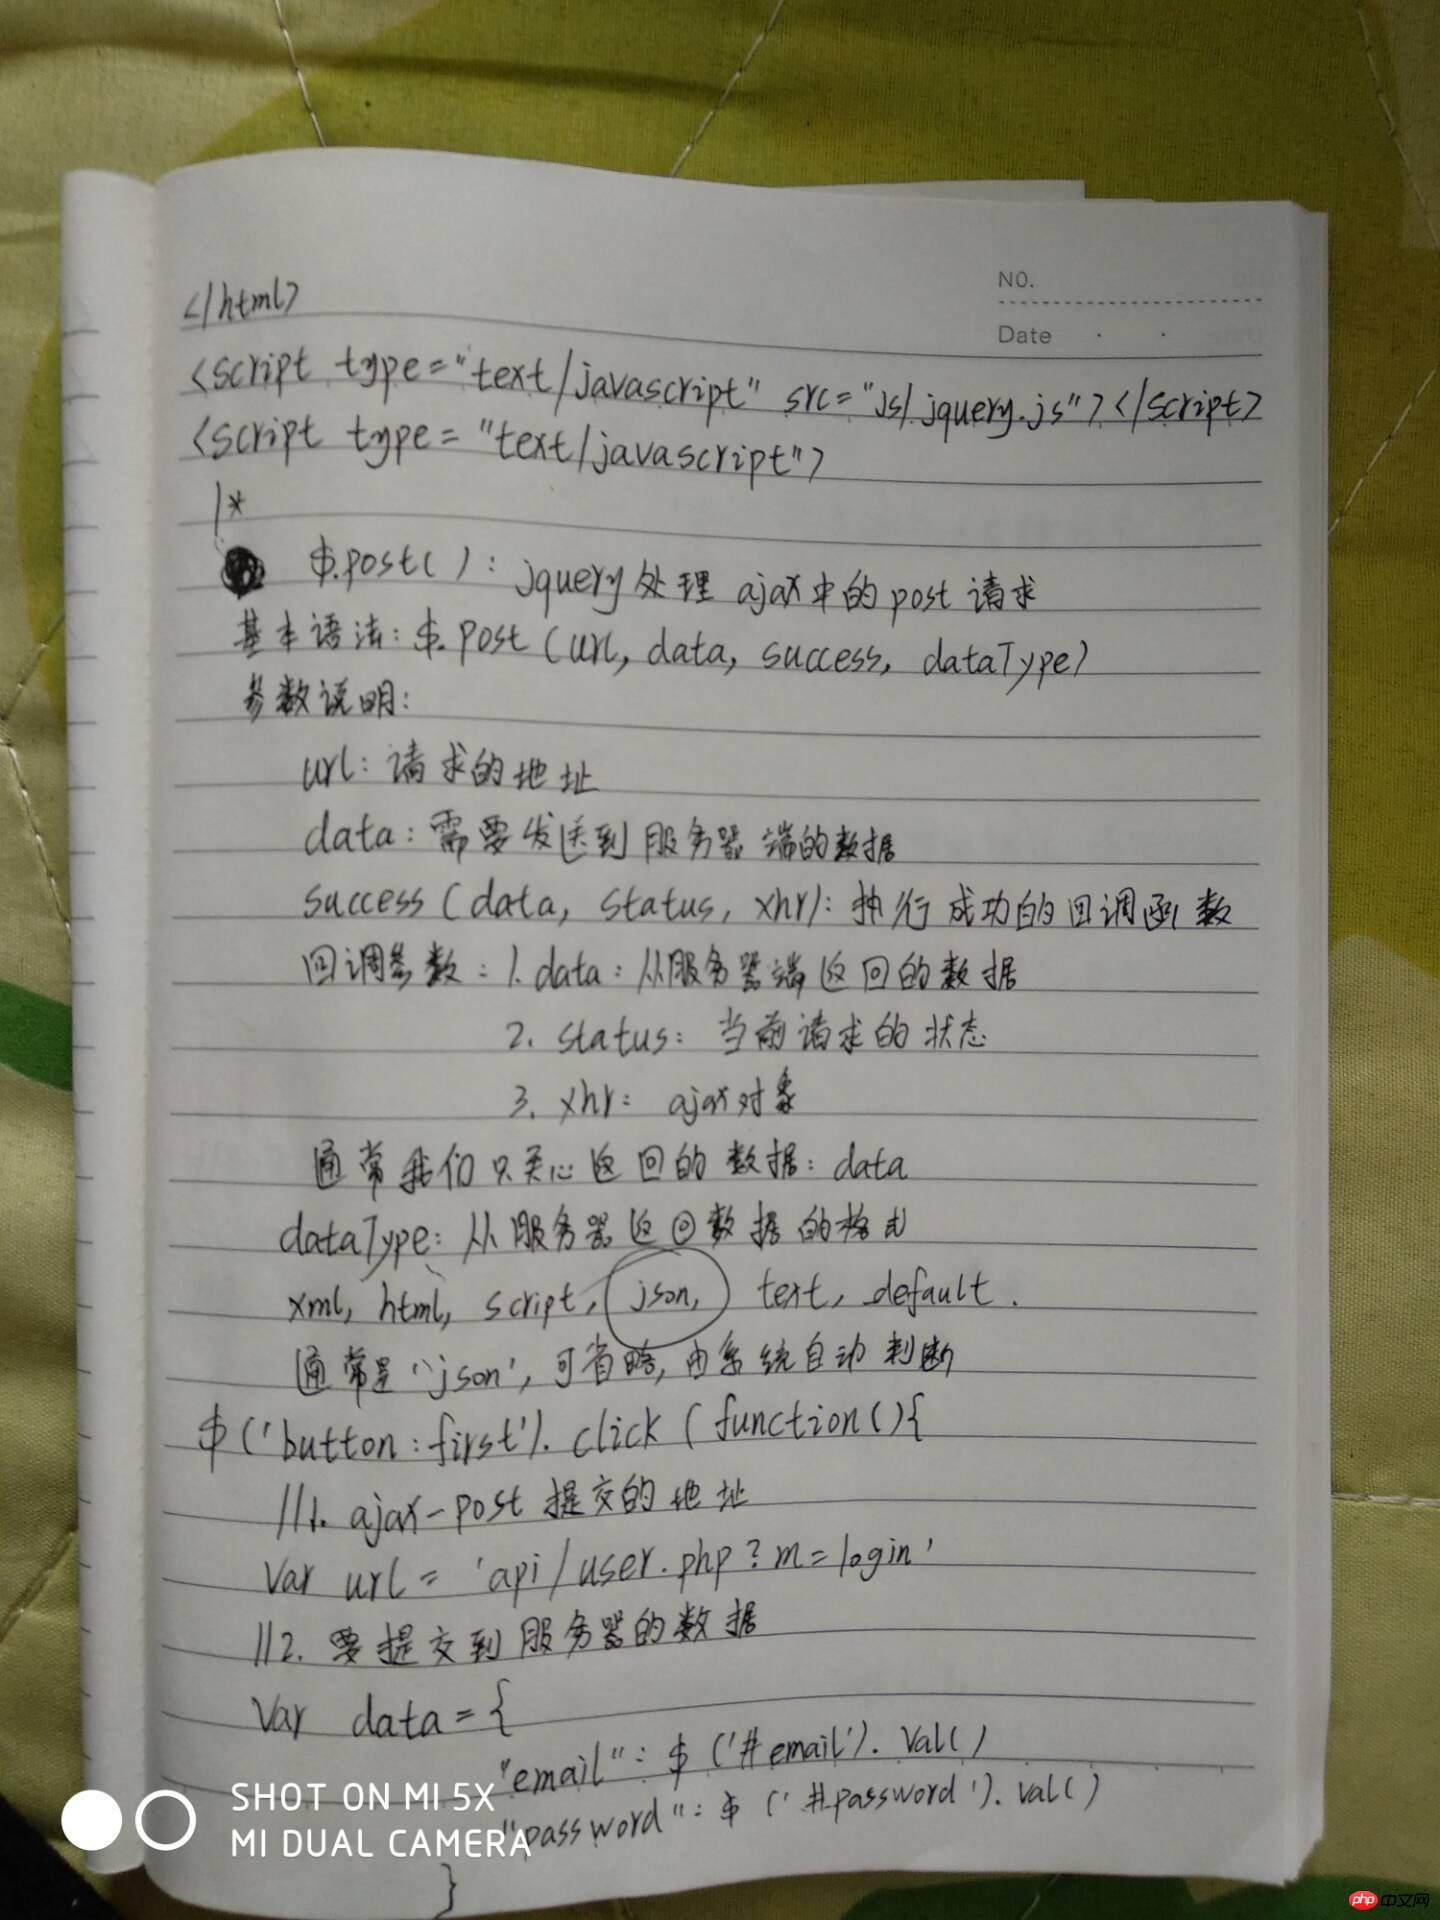 NO.
Date
</html>
<script type="text/javascript" src="js/jquery.js"></script>
<script type="text/javascript">
/*
$.post( ): jquery处理 ajax中的post请求
基本语法: $.post (url, data, success, dataType)
参数说明:
url: 请求的地址
data: 需要发送到服务器端的数据
success (data, status, xhr): 执行成功的回调函数
回调参数: 1. data: 从服务器端返回的数据
2. status: 当前请求的状态
3. xhr: ajax对象
通常我们只关心返回的数据: data
dataType: 从服务器返回数据的格式
xml, html, script, json, text, default.
通常是'json', 可省略, 由系统自动判断
$('button:first').click (function(){
//1. ajax-post 提交的地址
Var url = 'api/user.php?m=login'
//2. 要提交到服务器的数据
Var data = {
"email": $ ('#email').Val()
"password": $ ('#password').val()
}
SHOT ON MI 5X
MI DUAL CAMERA
php中文网